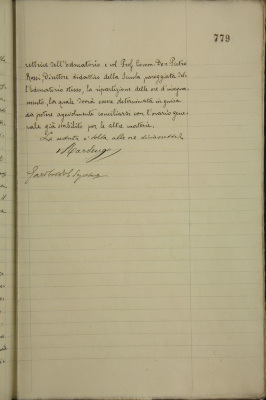 779
rettrice dell'Educatorio e col Prof. Comm. Don Pietro
Rossi Direttore didattico della Scuola pareggiata del-
l'Educatorio stesso, la ripartizione delle ore d'insegna-
mento, la quale dovrà essere determinata in guisa
da potere agevolmente conciliarsi con l'orario gene-
rale già stabilito per le altre materie.
La seduta è sciolta alle ore